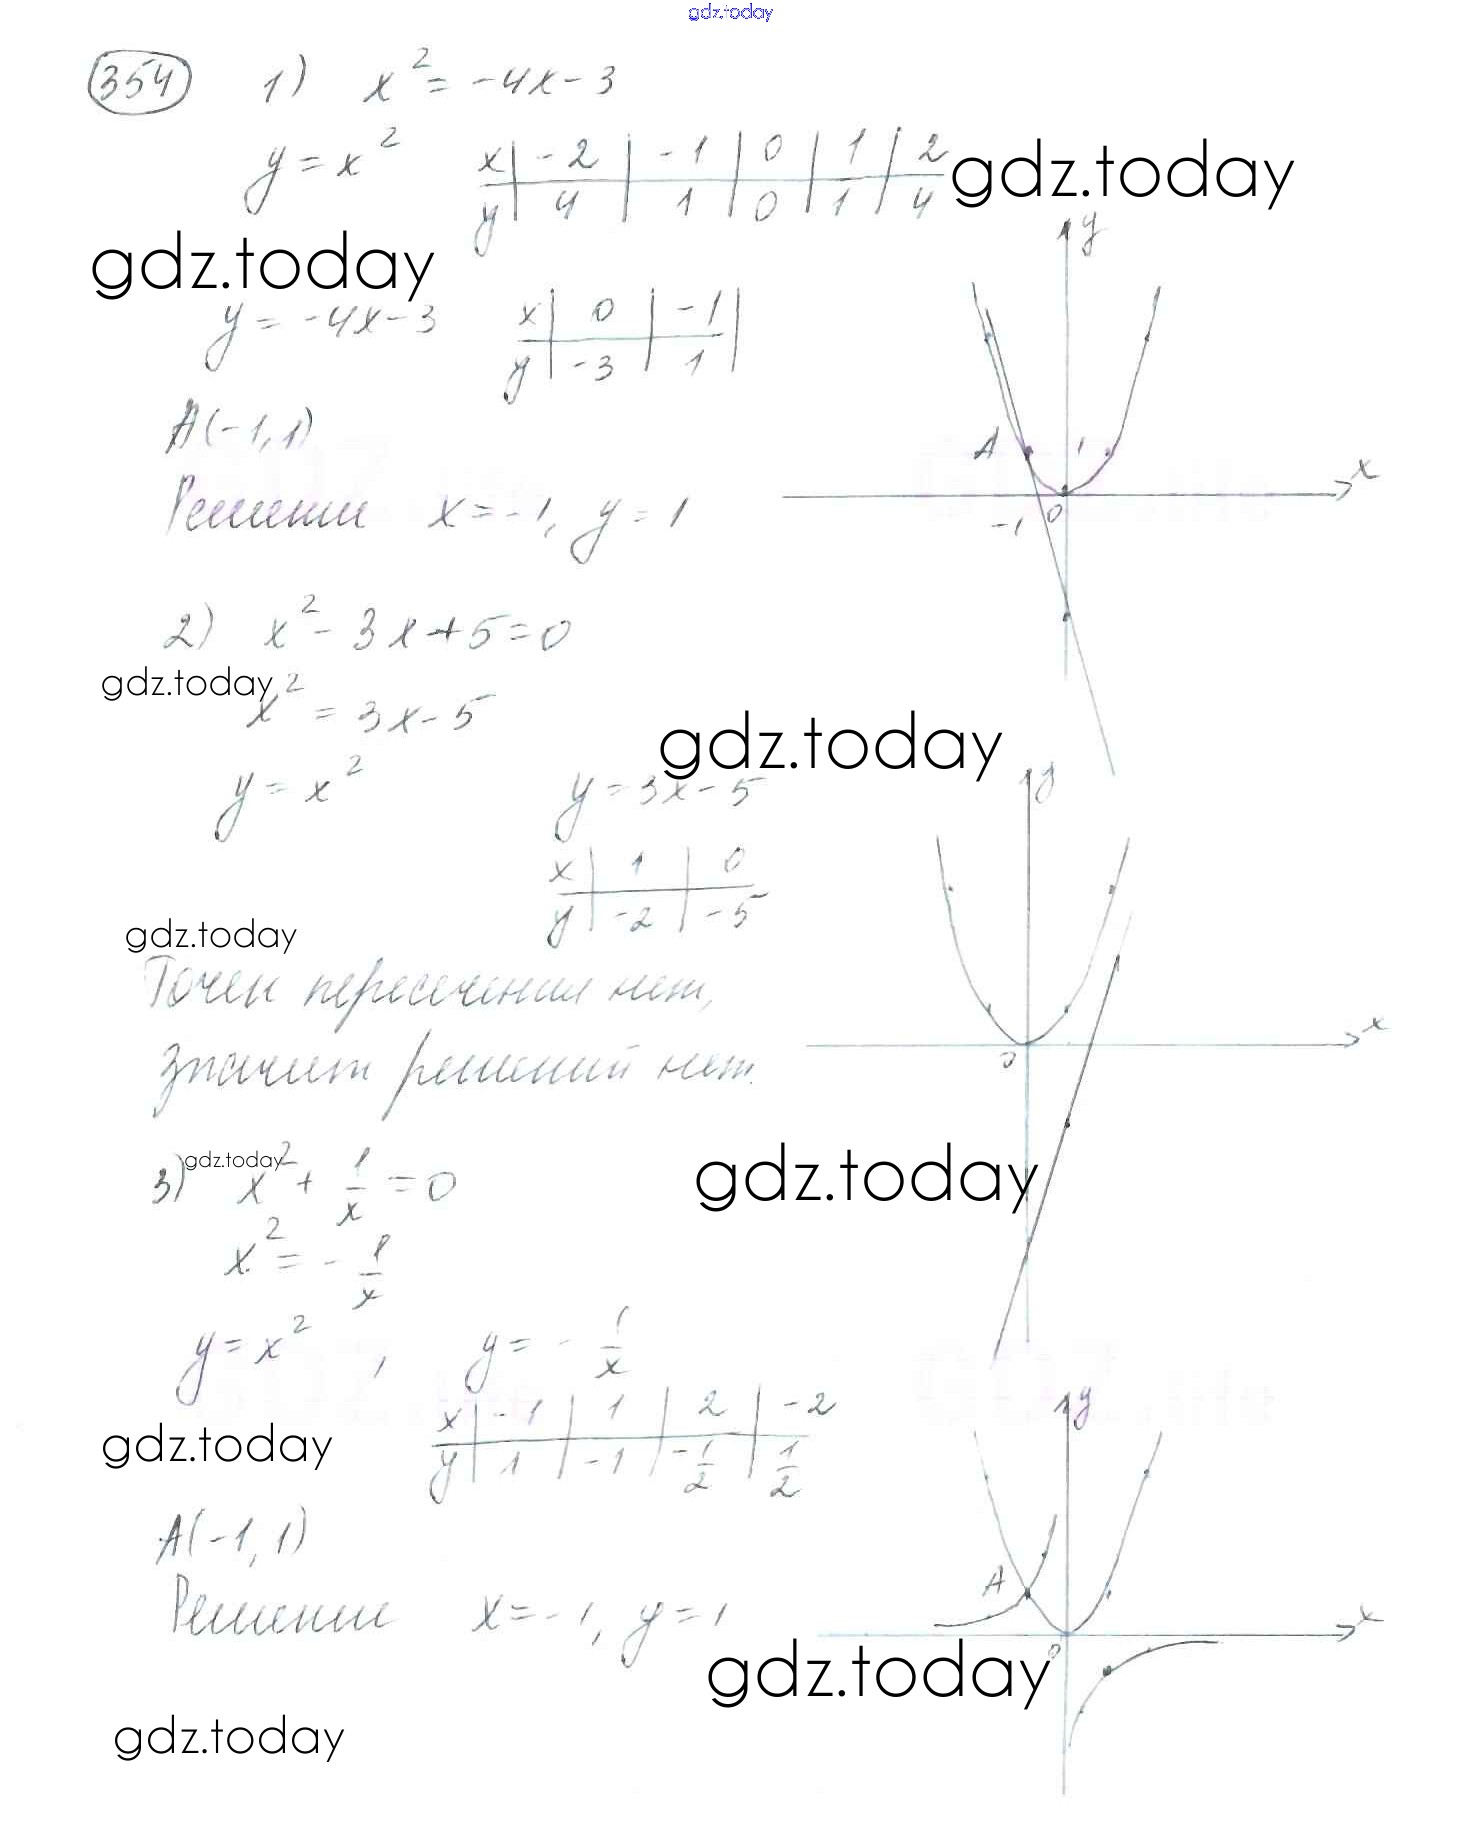 gdz.today
354 1) x² = -4x - 3
y = x² x | -2 | -1 | 0 | 1 | 2
y | 4 | 1 | 0 | 1 | 4
gdz.today
gdz.today
y
y = -4x - 3 x | 0 | -1 |
y | -3 | 1 |
A(-1, 1)
A 1
x
Решение x = -1, y = 1
-1 0
2) x² - 3x + 5 = 0
gdz.today
x² = 3x - 5
gdz.today
y = x² y = 3x - 5
y
x | 1 | 0
y | -2 | -5
gdz.today
Точек пересечения нет,
x
0
значит решений нет.
3) x² + 1/x = 0
gdz.today
gdz.today
x² = - 1/x
y = x², y = - 1/x
x | -1 | 1 | 2 | -2
y | 1 | -1 | -1/2 | 1/2
y
gdz.today
A(-1, 1)
A
Решение x = -1, y = 1
x
0
gdz.today
gdz.today